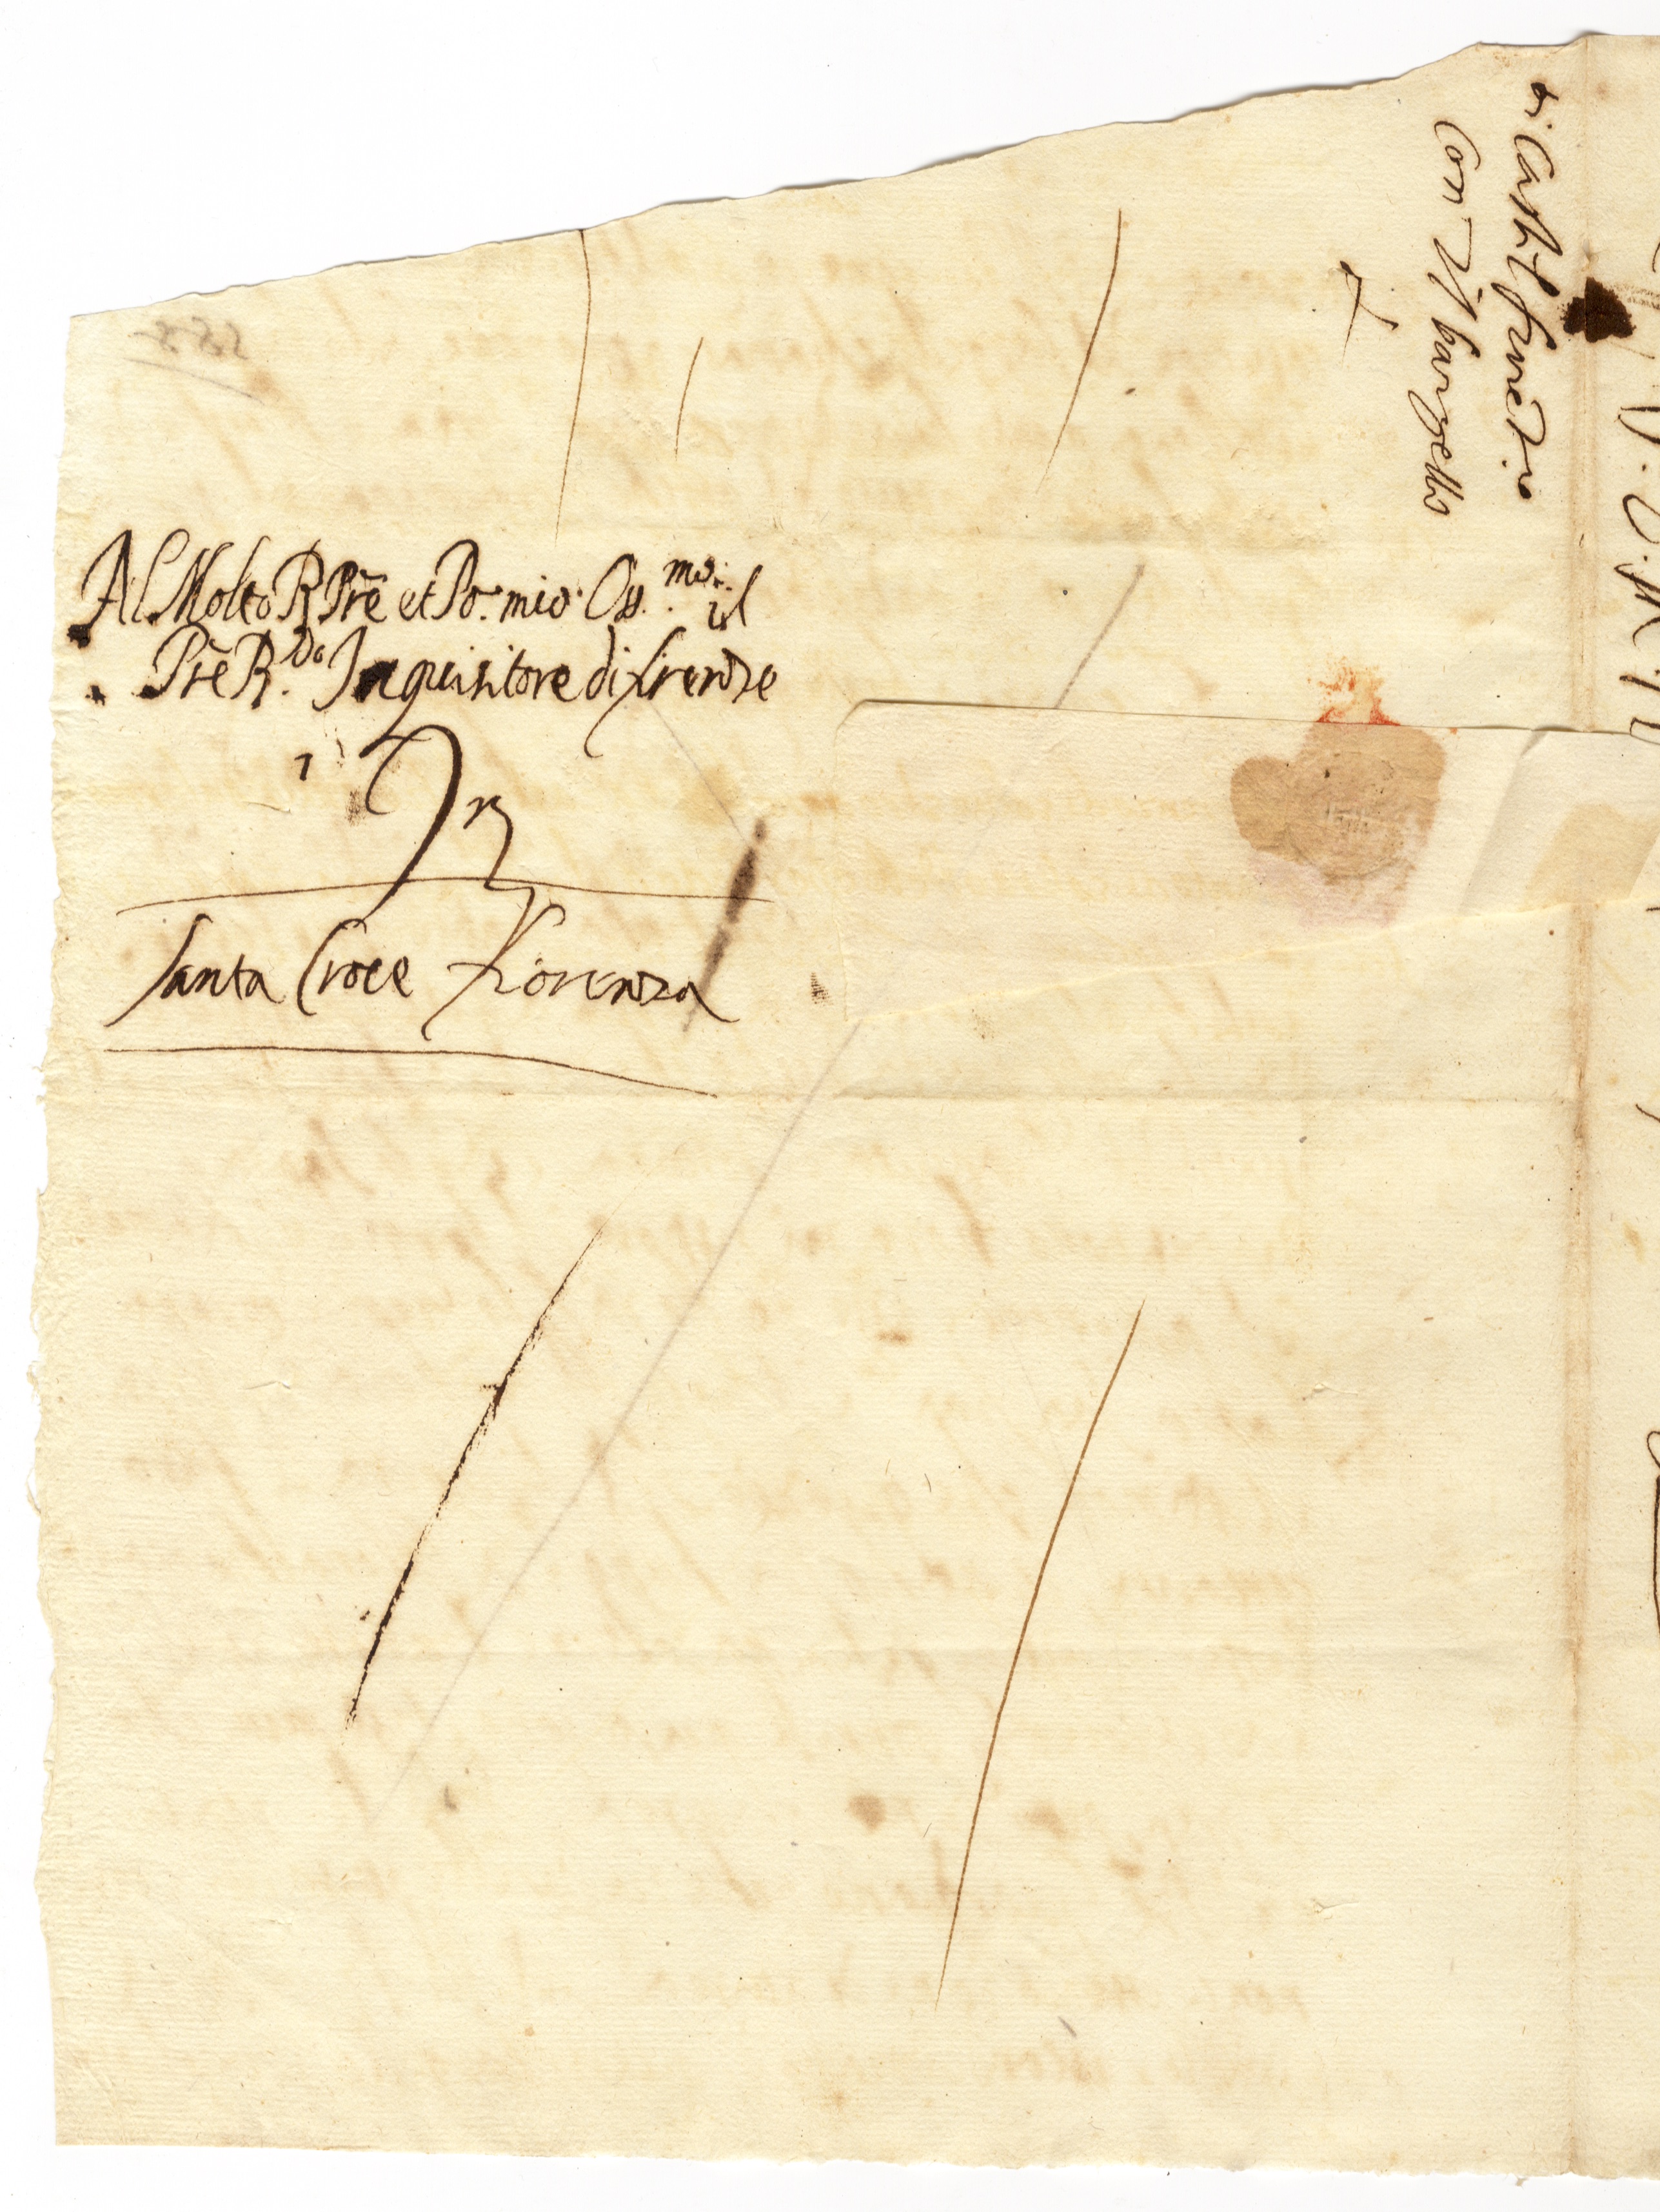 Al Molto R Prē et Pō. mio Oss.mo il
Prē R.do Inquisitore di firenze
In
Santa Croce Fiorenza
di Castel fiorētino
Con il bargello